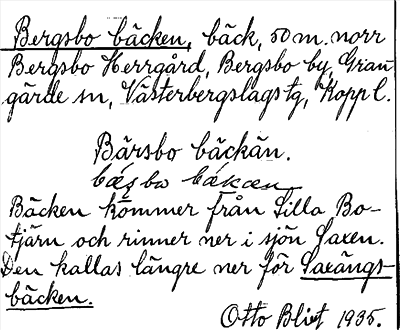 Bergsbo bäcken, bäck, 50 m. norr
Bergsbo Herrgård, Bergsbo by, Gran-
gärde sn, Västerbergslags tg, Kopp l.
Bärsbo bäckän.
Bäcken kommer från Lilla Bo-
tjärn och rinner ner i sjön Saxen.
Den kallas längre ner för Saxängs-
bäcken.
Otto Blixt 1935.